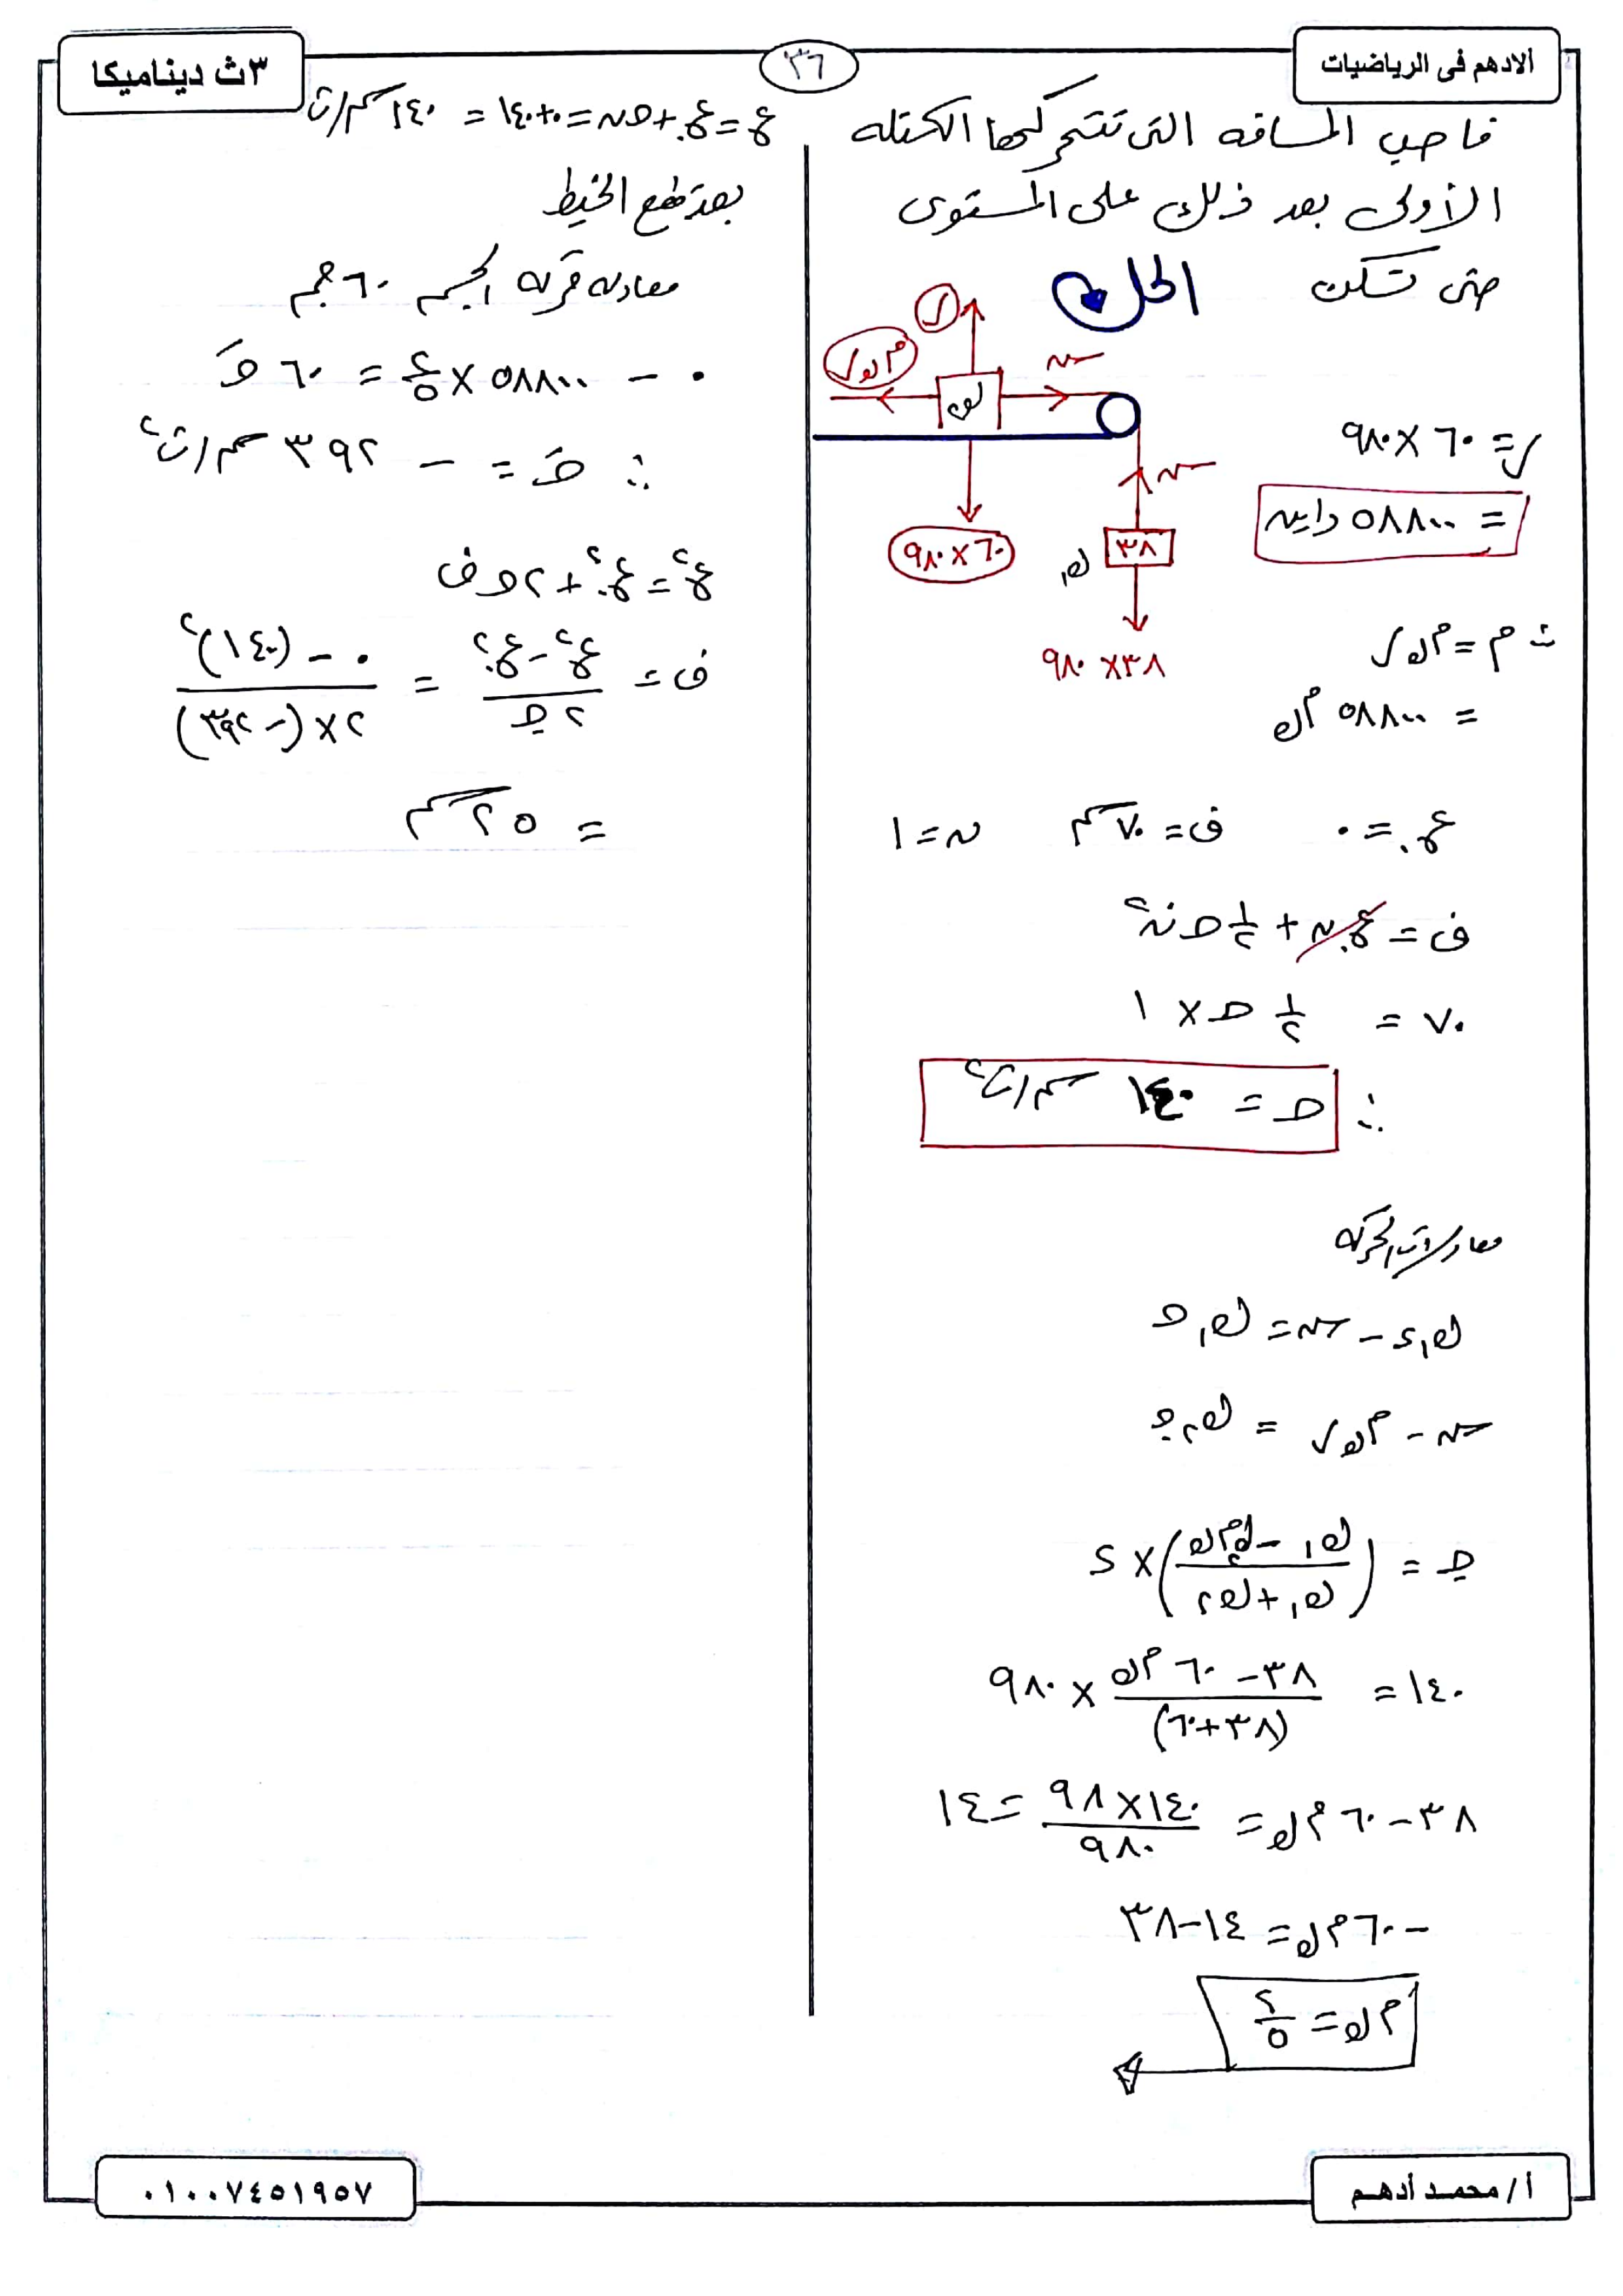 الادهم فى الرياضيات
٣٦
٣ث ديناميكا
فاحسب المسافه التى تتحركها الكتله
الأولى بعد ذلك على المستوى
حتى تسكن
الحل
ر
م ك ر
ش
ك٢
ش
٩٨٠ × ٦٠
٣٨
ك١
٩٨٠ × ٣٨
ر = ٦٠ × ٩٨٠
= ٥٨٨٠٠ داين
∵ م = م ك ر
= ٥٨٨٠٠ م ك
ع. = ٠ ف = ٧٠ سم ن = ١
ف = ع. ن + ١/٢ حـ ن٢
٧٠ = ١/٢ حـ × ١
∴ حـ = ١٤٠ سم/ث٢
معادلات الحركه
ك١ د - ش = ك١ حـ
ش - م ك ر = ك٢ حـ
حـ = (ك١ - م ك ك٢ / ك١ + ك٢) × د
١٤٠ = ٣٨ - ٦٠ م ك / (٣٨ + ٦٠) × ٩٨٠
٣٨ - ٦٠ م ك = ١٤٠ × ٩٨ / ٩٨٠ = ١٤
- ٦٠ م ك = ١٤ - ٣٨
م ك = ٢/٥
ع = ع. + حـ ن = ٠ + ١٤٠ = ١٤٠ سم/ث
بعد قطع الخيط
معادله حركه الجسم ٦٠ جم
٠ - ٥٨٨٠٠ × ٢/٥ = ٦٠ حـَ
∴ حـَ = - ٣٩٢ سم/ث٢
ع٢ = ع.٢ + ٢ حـ ف
ف = ع٢ - ع.٢ / ٢ حـ = ٠ - (١٤٠)٢ / ٢ × (- ٣٩٢)
= ٢٥ سم
أ/ محمد أدهم
٠١٠٠٧٤٥١٩٥٧